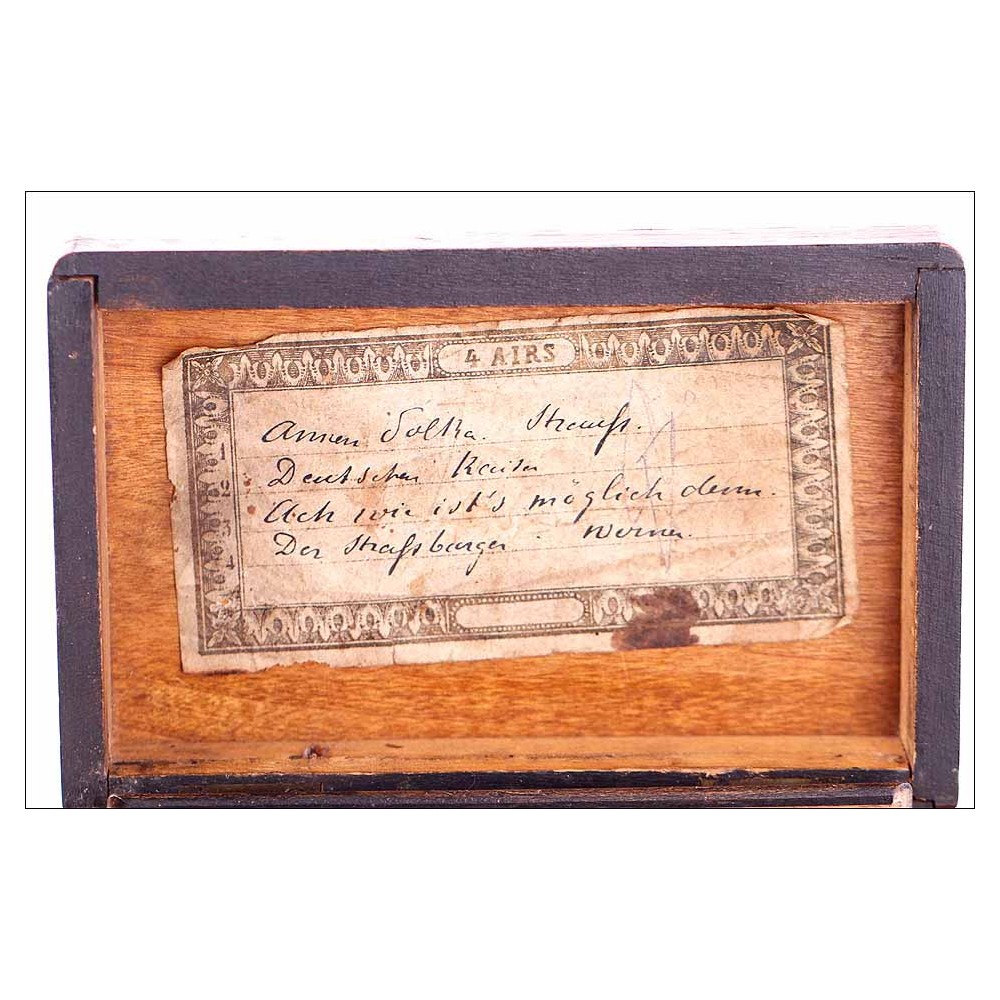 4 AIRS
1 Annen Polka. Strauſs.
2 Deutschen Kaiser
3 Ach wie ist's möglich denn.
4 Der Straſsburger - Werner.